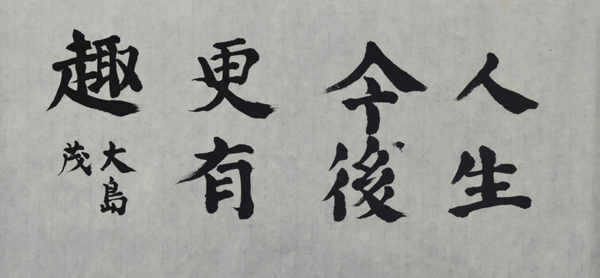 人生
今後
更有
趣
大島
茂